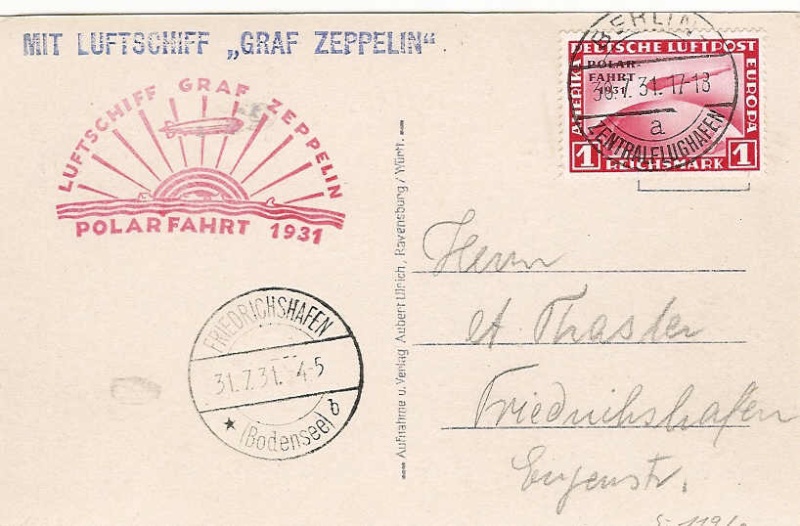 MIT LUFTSCHIFF „GRAF ZEPPELIN“.
LUFTSCHIFF GRAF ZEPPELIN
POLARFAHRT 1931
DEUTSCHE LUFTPOST
AMERIKA
EUROPA
POLAR-
FAHRT
1931
1 REICHSMARK 1
BERLIN
30.7.31.17-18
a
ZENTRALFLUGHAFEN
FRIEDRICHSHAFEN
31.7.31. 4-5
(Bodensee) b
Aufnahme u. Verlag Aubert Ulrich, Ravensburg / Württ.
Herrn
Friedrichshafen
Eugenstr.